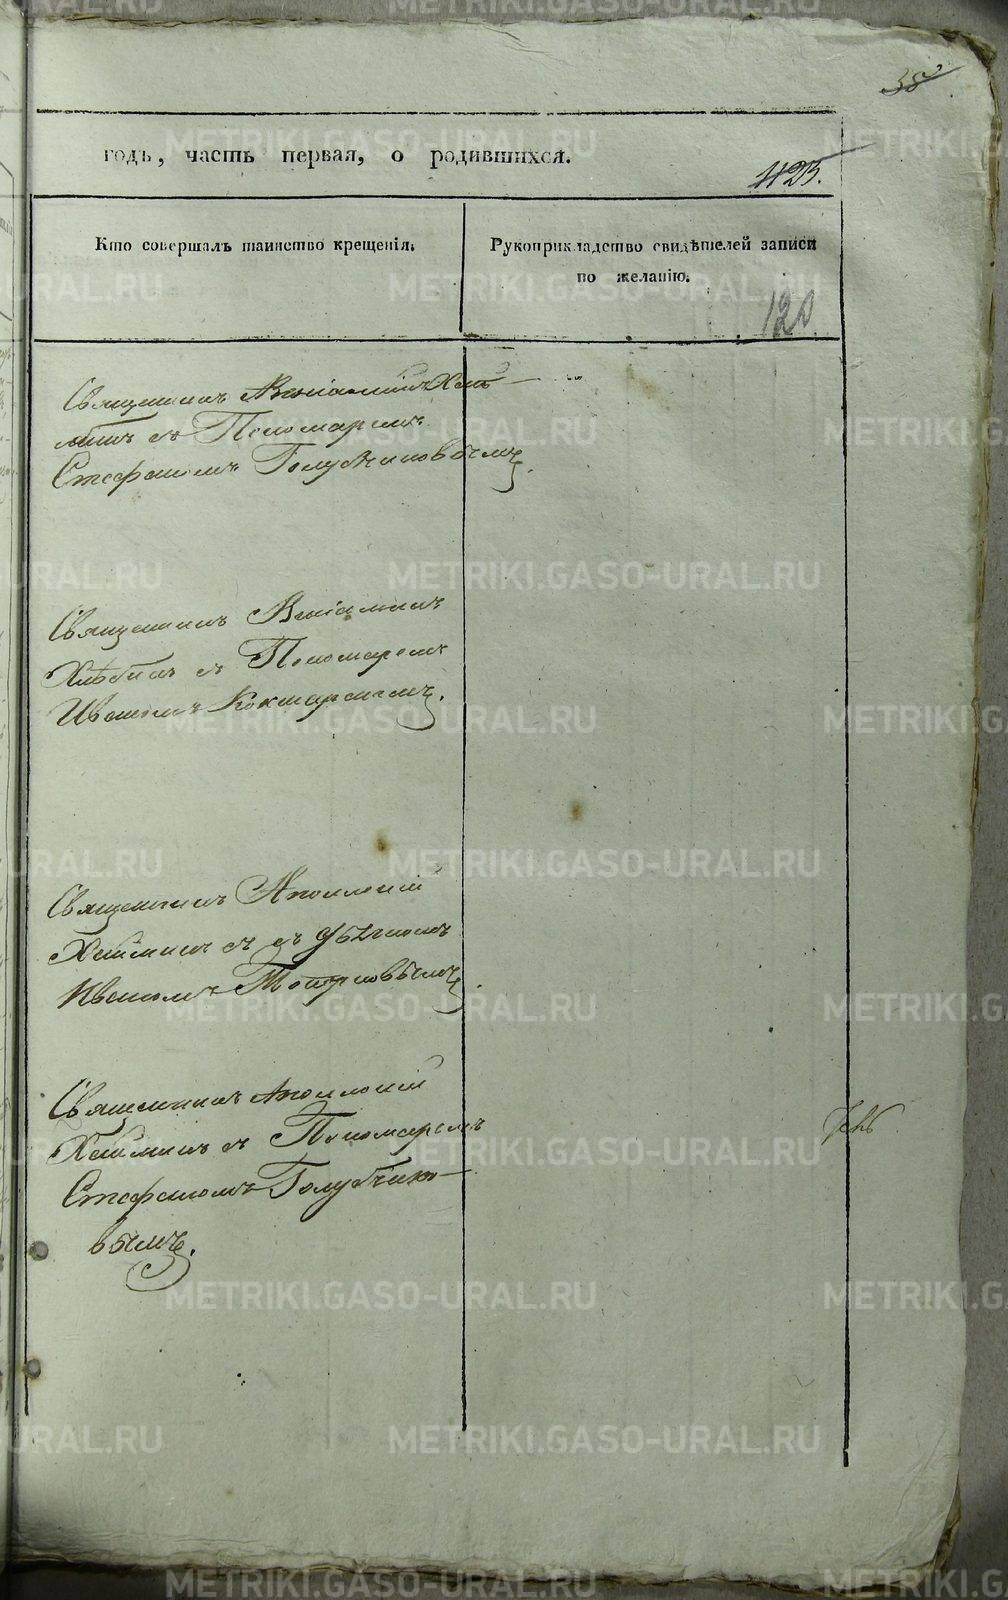 годъ, часть первая, о родившихся.
1123.
Кто совершалъ таинство крещенія.
Рукоприкладство свидѣтелей записи
по желанію.
120
Священникъ Веніаминъ Хлѣ-
бинъ съ Пономаремъ
Стефаномъ Голубчиковымъ.
Священникъ Веніаминъ
Хлѣбинъ съ Пономаремъ
Иваномъ Кокшарскимъ.
Священникъ Аполлоній
съ дьячкомъ
Иваномъ
Священникъ Аполлоній
съ Пономаремъ
Стефаномъ Голубчико-
вымъ.
METRIKI.GASO-URAL.RU